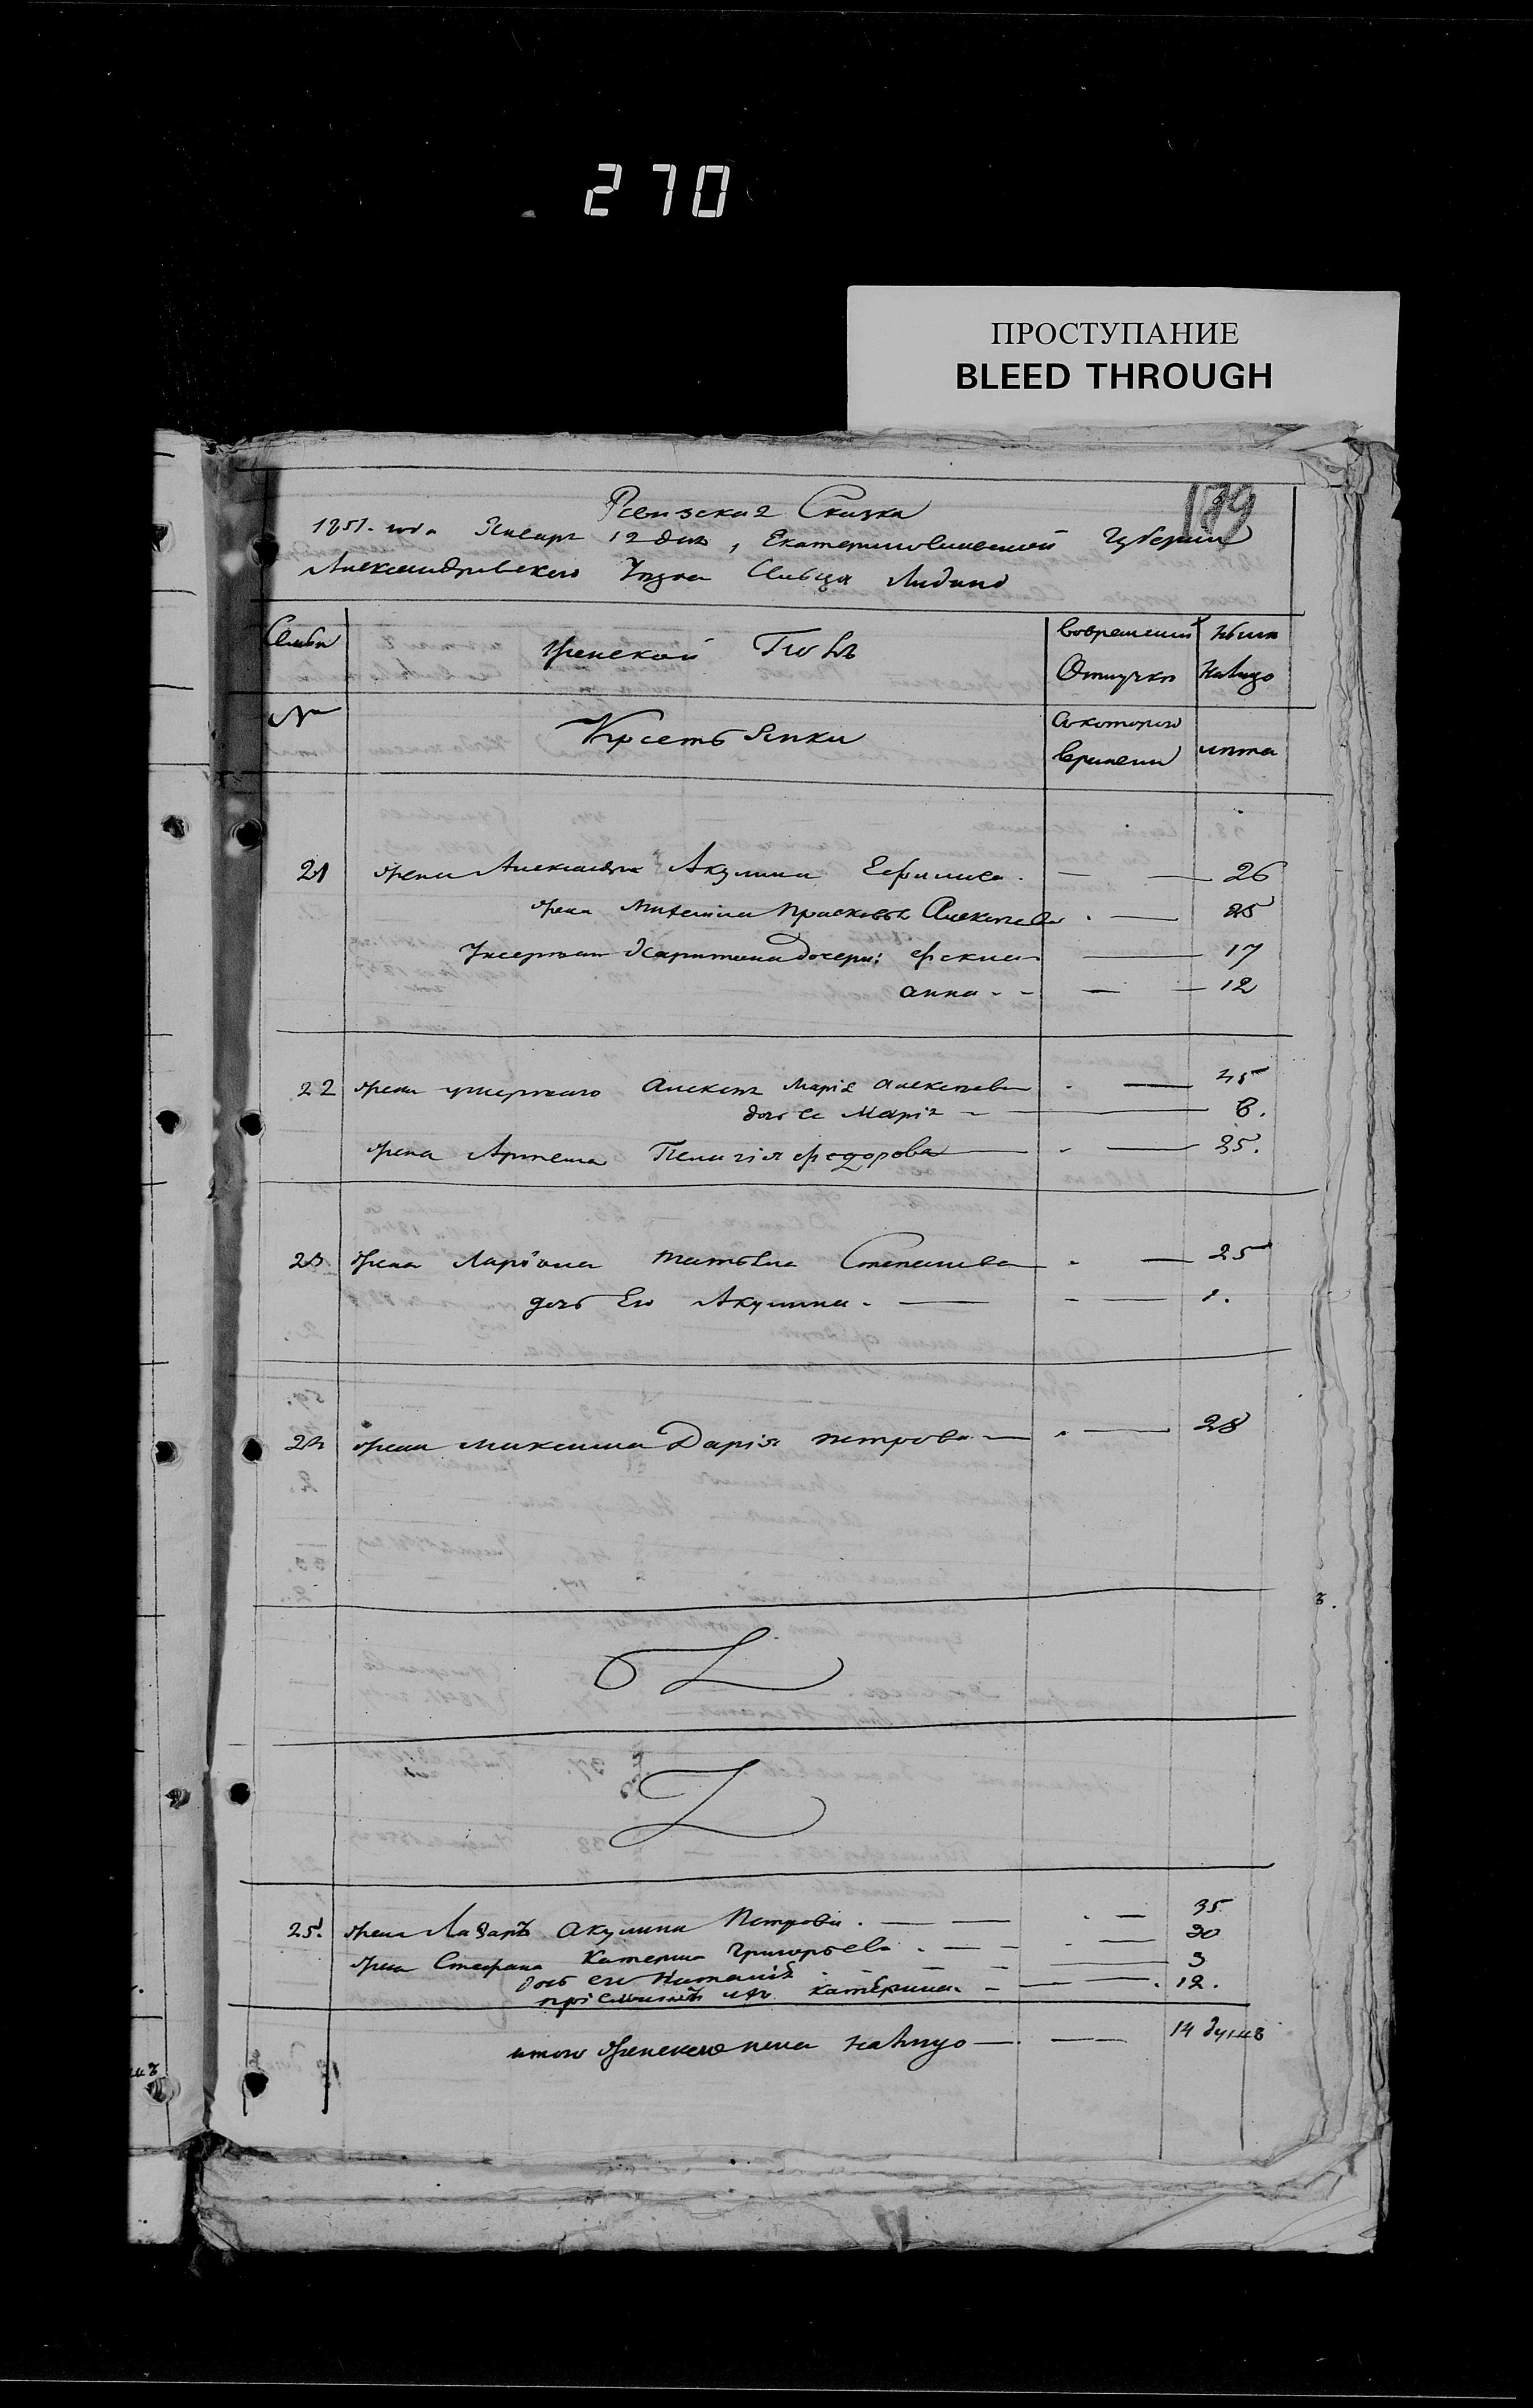 270
ПРОСТУПАНИЕ
BLEED THROUGH
179
Ревизская Сказка
1851. года Январь 12 дня, Екатеринославской Губернии
Александровского Уезда Сельца Лидино
Семьи Женской Полъ вовременной ныне
Отлучке налицо
№ Крестьянки
скоторого
времени лета
21 жена Александра Акулина Ефимова. — — 26
жена Михаила Прасковья Алексеева . — 25
Умершаго Харитона дочери: Фекла — 17
анна - - — — 12
22 жена умершаго Алексея Марiя Алексеева . — 45
дочь ее Марiя - — 8.
жена Артема Пелагiя Федорова — . — 25.
23 жена Ларiона Татьяна Степанова — . — 25
дочь Его Акулина. — - — 1.
24 жена Максима Дарiя Петрова — . — 28
25. жена Лазаръ Акулина Петрова . — — . — 35
жена Стефана Катерина Григорьева . — - . — 30
дочь его Наталiя - — 3
Катерина. - — — . 12.
итого женскаго пола налицо — — 14 душъ